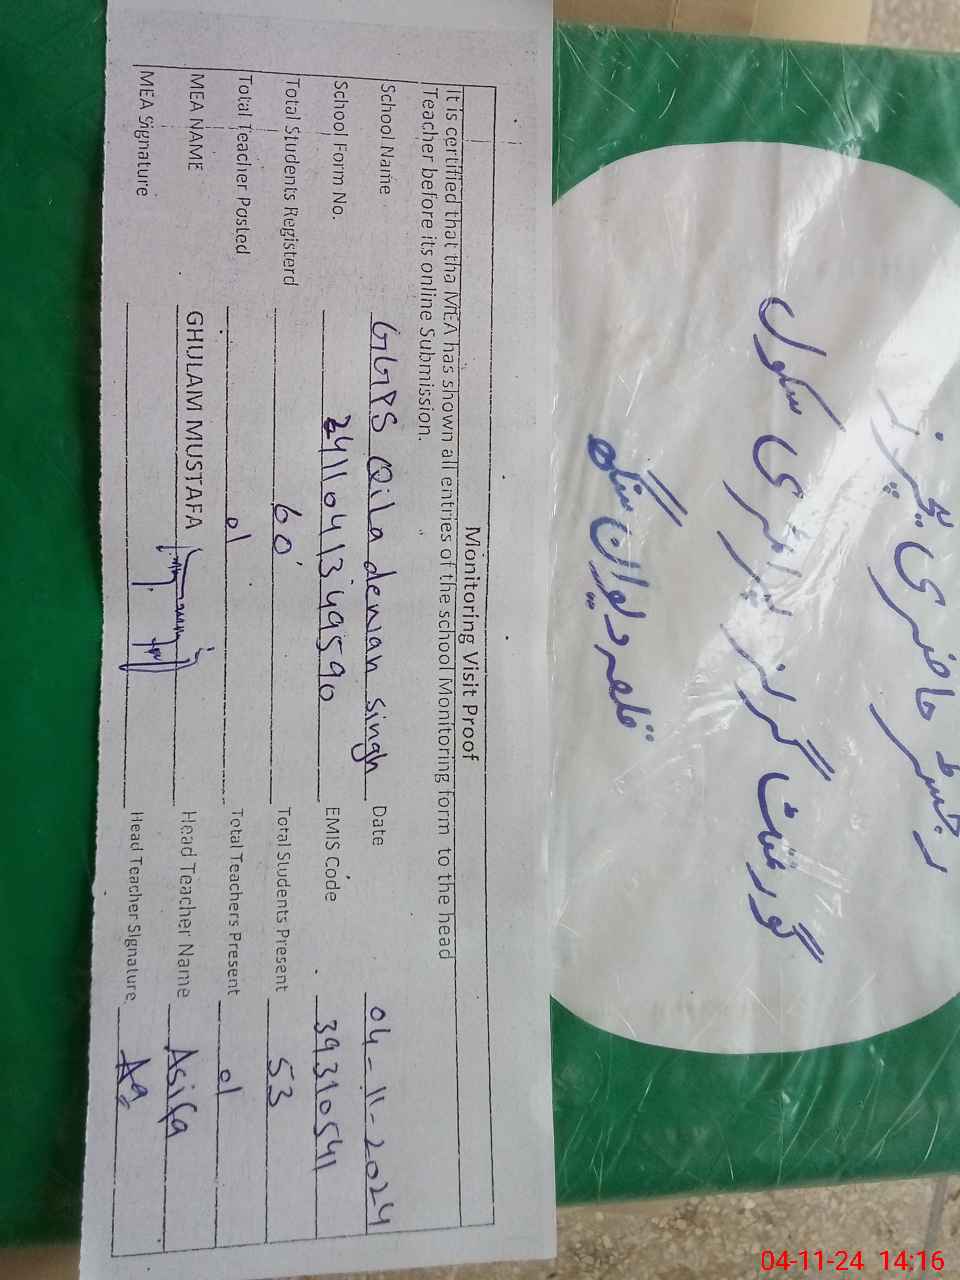 Monitoring Visit Proof
It is certified that tha MEA has shown all entries of the school Monitoring form to the head
Teacher before its online Submission.
School Name GGPS Qila dewan singh Date 04-11-2024
School Form No. 2411041349590 EMIS Code 39310541
Total Students Registerd 60 Total Students Present 53
Total Teacher Posted 01 Total Teachers Present 01
MEA NAME GHULAM MUSTAFA Head Teacher Name Asifa
MEA Signature Head Teacher Signature
رجسٹر حاضری ٹیچرز
گورنمنٹ گرلز پرائمری سکول
قلعہ دیوان سنگھ
04-11-24 14:16